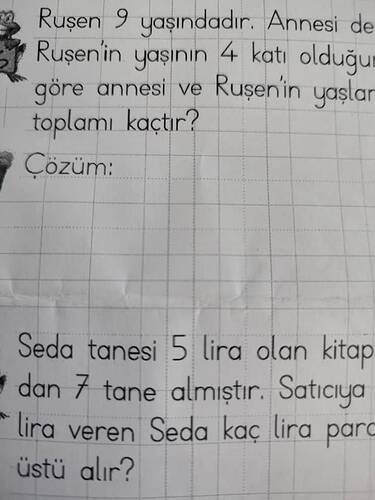 Ruşen 9 yaşındadır. Annesi de
Ruşen'in yaşının 4 katı
göre annesi ve Ruşen'in
toplamı kaçtır?
Çözüm:
Seda tanesi 5 lira olan
dan 7 tane almıştır. Satıcıya
lira veren Seda kaç lira
üstü alır?